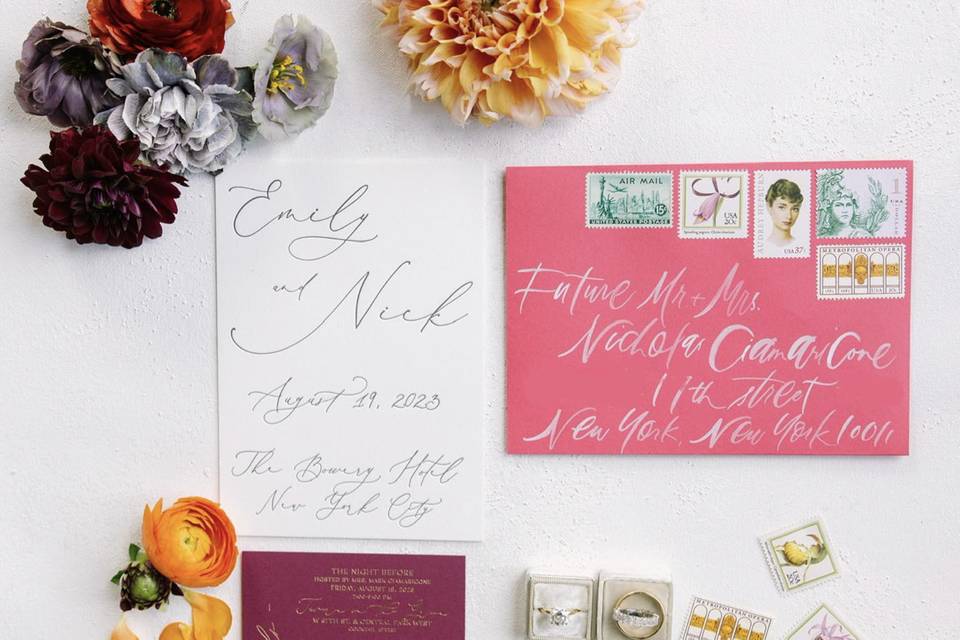 Emily
and
Nick
August 19, 2023
The Bowery Hotel
New York City
AIR MAIL
15¢
UNITED STATES POSTAGE
USA
20c
AUDREY HEPBURN
USA 37c
1
METROPOLITAN OPERA
1883 1983 USA 20c
Future Mr + Mrs.
Nicholas Ciamaricone
11th street
New York, New York 10011
THE NIGHT BEFORE
HOSTED BY MRS. MARK CIAMARICONE
FRIDAY, AUGUST 18, 2023
7:00-9:00 PM
Tavern on the Green
W 67TH ST. & CENTRAL PARK WEST
COCKTAIL ATTIRE
USA
METROPOLITAN OPERA